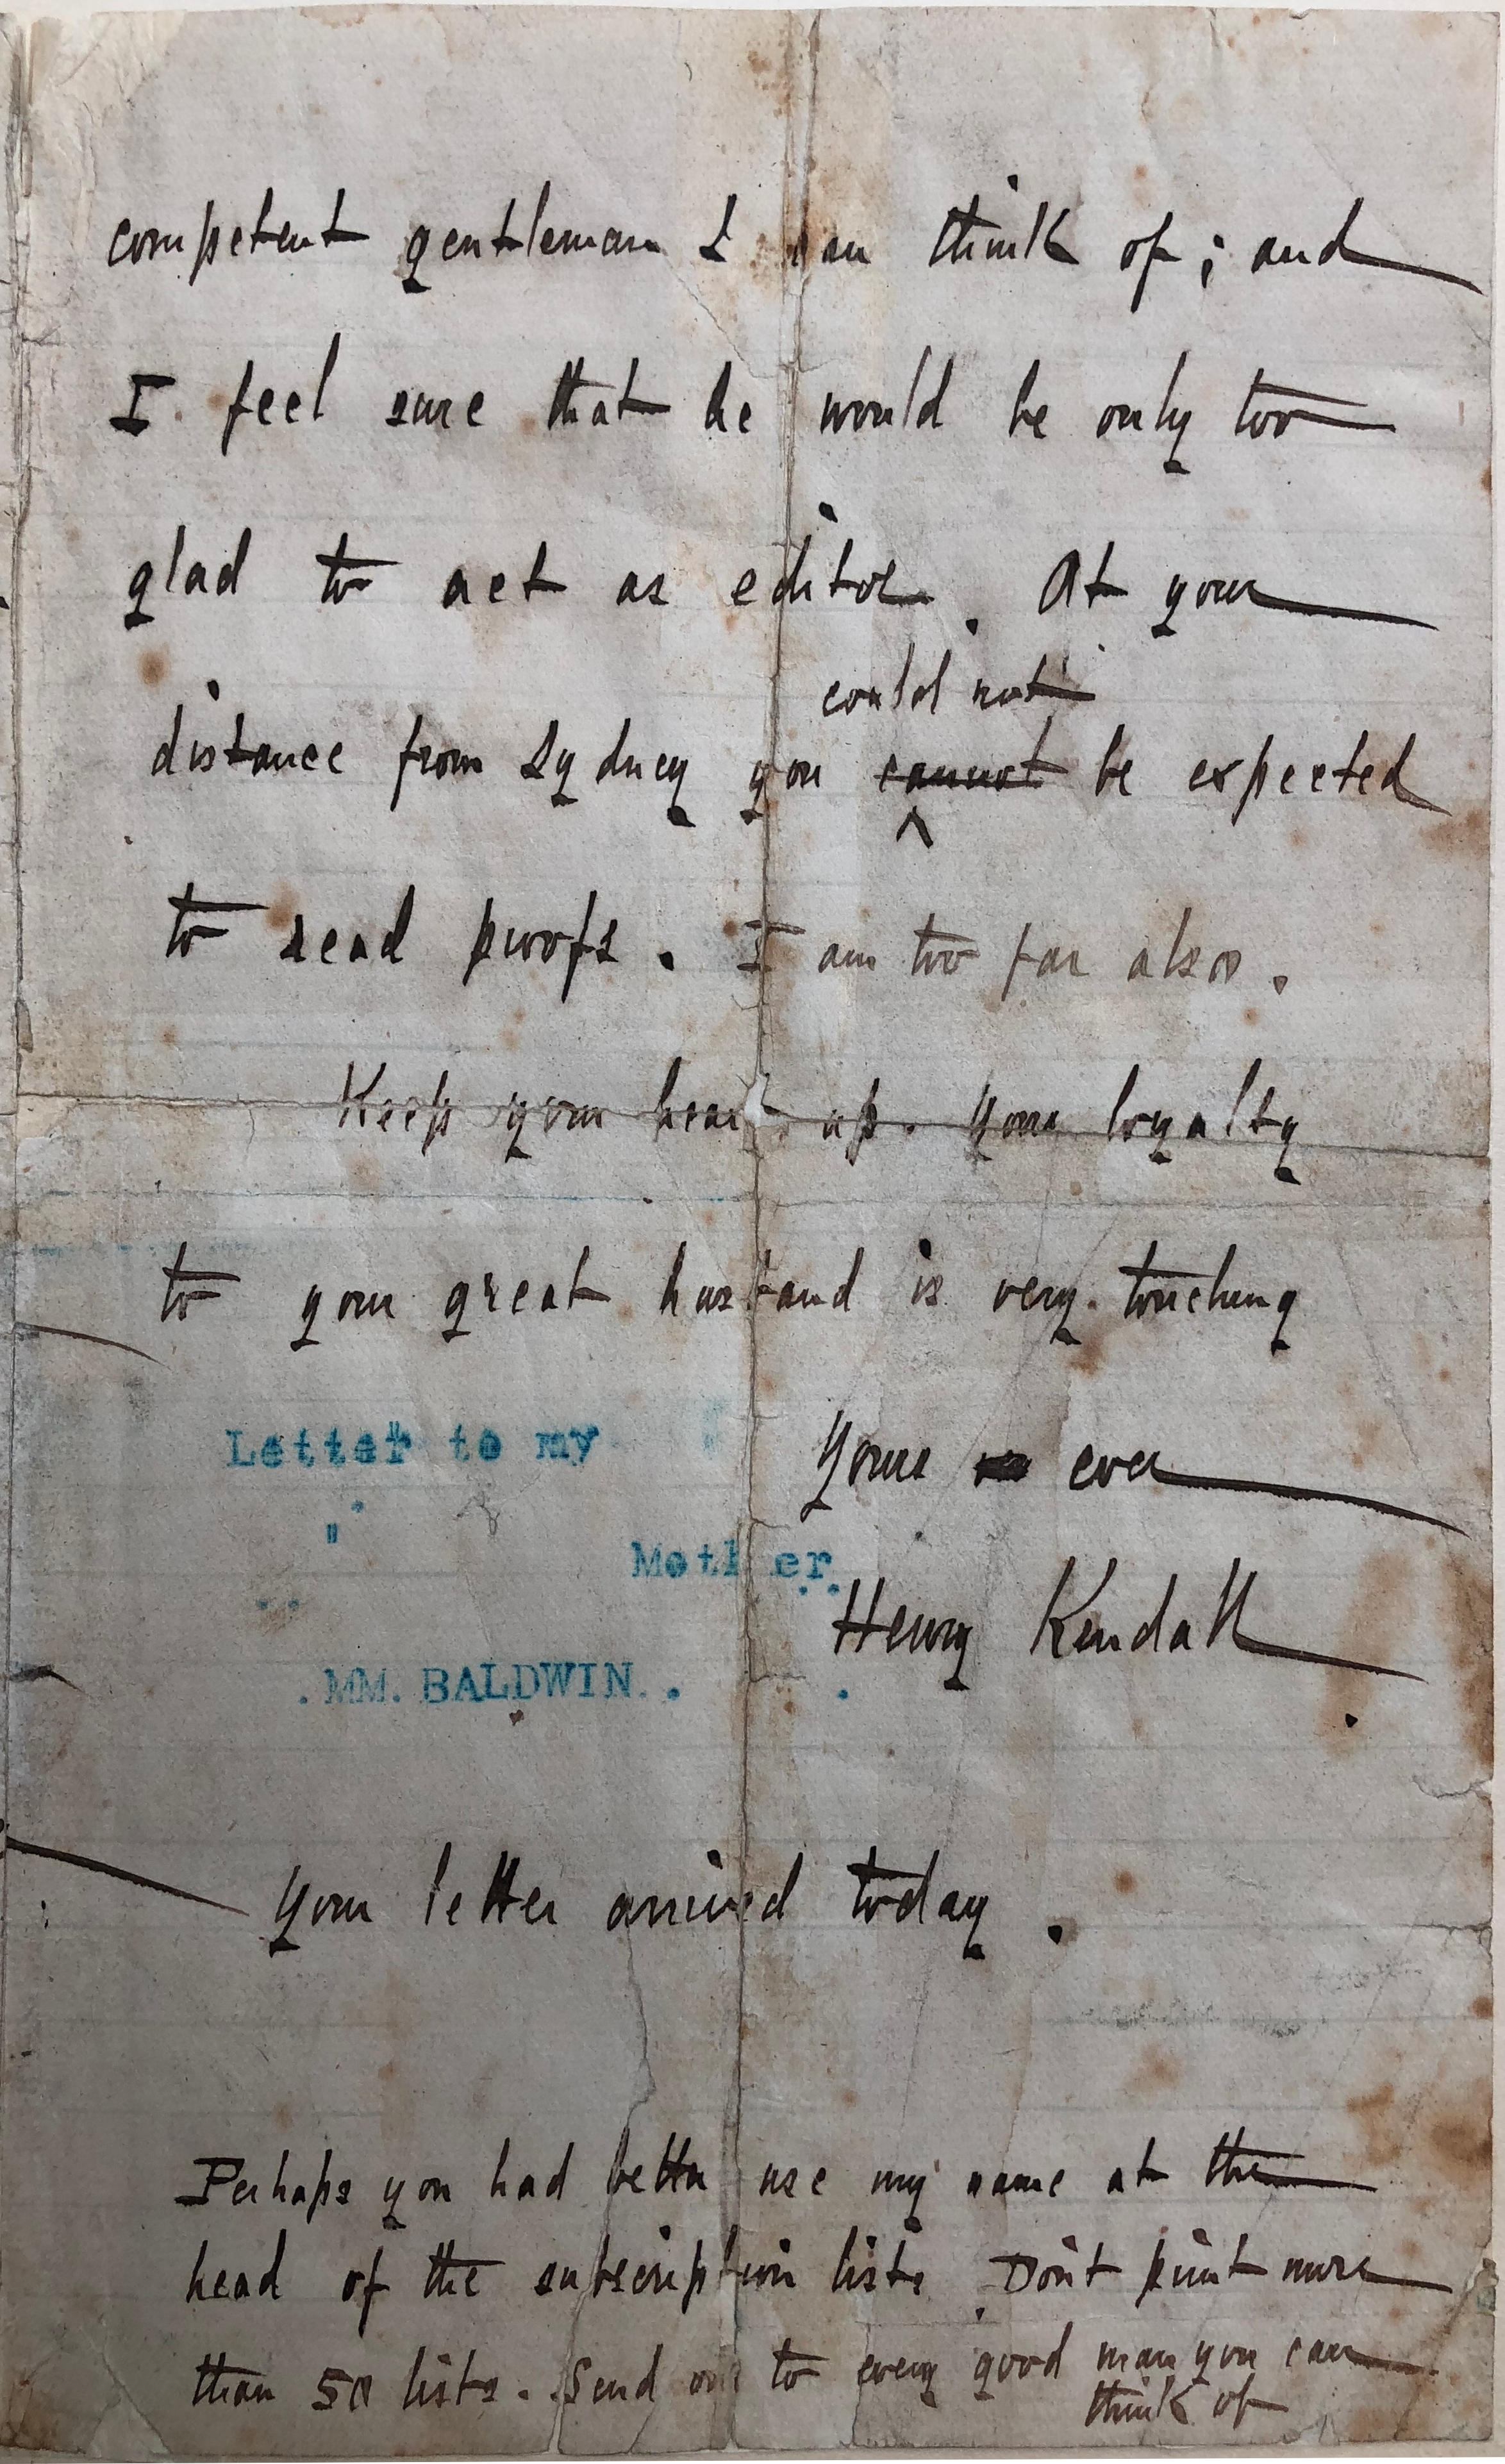 competent gentleman I can think of; and
I feel sure that he would be only too
glad to act as editor. At your
could not
distance from Sydney you cannot be expected
to read proofs. I am too far also.
Keep your heart up. Your loyalty
to your great husband is very touching
Letter to my
Yours ever
" Mother.
Henry Kendall
.MM. BALDWIN..
Your letter arrived today.
Perhaps you had better use my name at the
head of the subscription lists. Don't print more
than 50 lists. Send one to every good man you can
think of